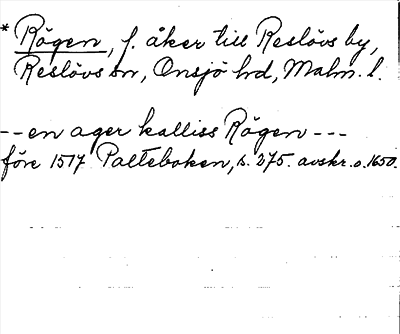 * Rögen, f. åker till Reslövs by,
Reslövs sn, Onsjö hd, Malm. l.
-- en ager kalliss Rögen ---
före 1517 Palteboken, s. 275. avskr. o. 1650.